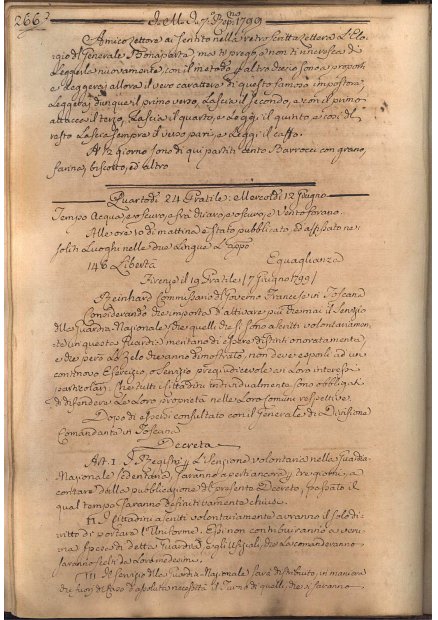 266.
Amico Lettore ai sentito nella retroscritta Lettera L'Elo-
gio del Generale Bonaparta, ma ti prego, e non ti incresca di
Leggerla nuovamente, con il metodo, che
e Leggerai allora il vero carattere di questo famoso impostore,
Leggerai dunque il primo verso, Lascia il secondo, e con il primo
attacca il terzo, Lascia il quarto, e Leggi il quinto, e così del
resto Lascia sempre il verso pari, e Leggi il caffo.
A ½ giorno sono di qui partiti cento Barrocci con grano,
farina, biscotto, ed altro
Quartodì 24 Pratile: Mercoledì 12 Giugno
Tempo Acqua, e oscuro, e oscuro, e Vento forano.
Alle ore 10 di mattina è stato pubblicato, ed affissato ne
soliti Luoghi nelle due Lingue L'appo
146 Libertà Eguaglianza
Firenze il 19 Pratile (7 Giugno 1799)
Reinhard Commissario di Governo Francese in Toscana
Considerando che importa d'attivare più che mai il servizio
della Guardia Nazionale, che quelli che si sono ascritti volontariamen-
te in questo Ruolo meritano di essere distinti onoratamente,
e che però lo Zelo che anno dimostrato, non deve esporli ad un
continovo Esercizio, o servizio pregiudicevole ai Loro interessi
particolari. Che tutti i Cittadini individualmente sono obbligati
di difendere Le Loro proprietà nelle Loro Comuni respettive.
Dopo di essersi consultato con il Generale di Divisione
Comandante in Toscana
Decreta
Art. I. I Registri per L'iscrizione volontaria nella Guardia
Nazionale sedentaria, saranno aperti ancora per tre giorni, a
contare dalla pubblicazione del presente Decreto, passato il
qual tempo saranno definitivamente chiusi.
II. I Cittadini ascritti volontariamente avranno il solo di-
ritto di portare l'Uniforme. Essi non contribuiranno a veru-
na spesa di detta Guardia, e gli Ufiziali, che La comanderanno
saranno scelti da Loro medesimi.
III. Il servizio della Guardia Nazionale sarà distribuito, in maniera
che fuori di Caso d'assoluta necessità il Turno di quelli, che si saranno